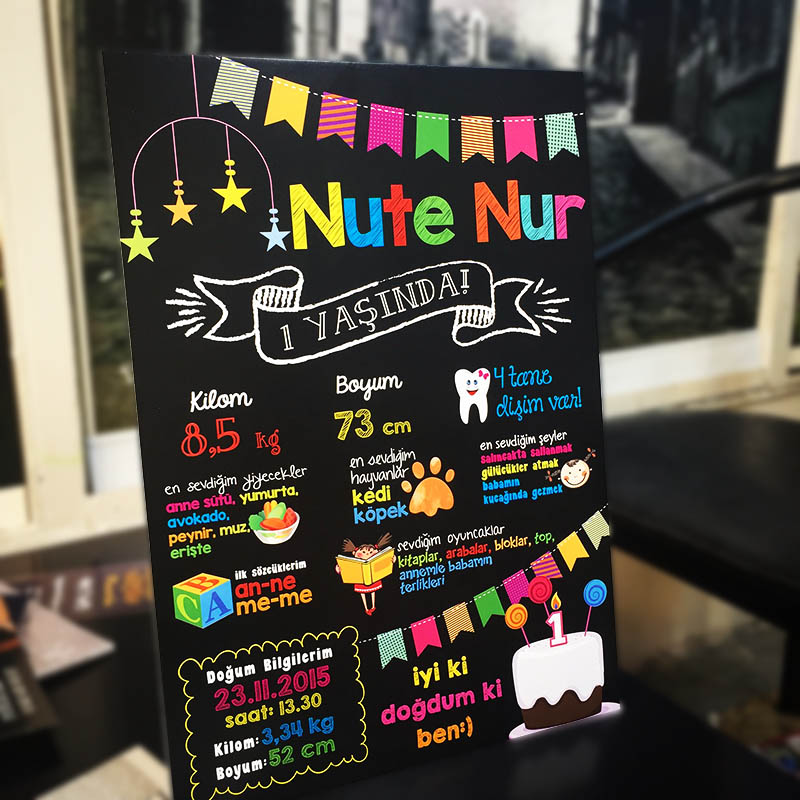 Nute Nur
1 YAŞINDA!
Kilom
8,5 kg
Boyum
73 cm
4 tane
dişim var!
en sevdiğim yiyecekler
anne sütü, yumurta,
avokado,
peynir, muz,
erişte
en sevdiğim
hayvanlar
kedi
köpek
en sevdiğim şeyler
salıncakta sallanmak
gülücükler atmak
babamın
kucağında gezmek
ilk sözcüklerim
an-ne
me-me
ABC
sevdiğim oyuncaklar
kitaplar, arabalar, bloklar, top,
annemle babamın
terlikleri
Doğum Bilgilerim
23.11.2015
saat: 13.30
Kilom: 3,34 kg
Boyum: 52 cm
iyi ki
doğdum ki
ben:)
1